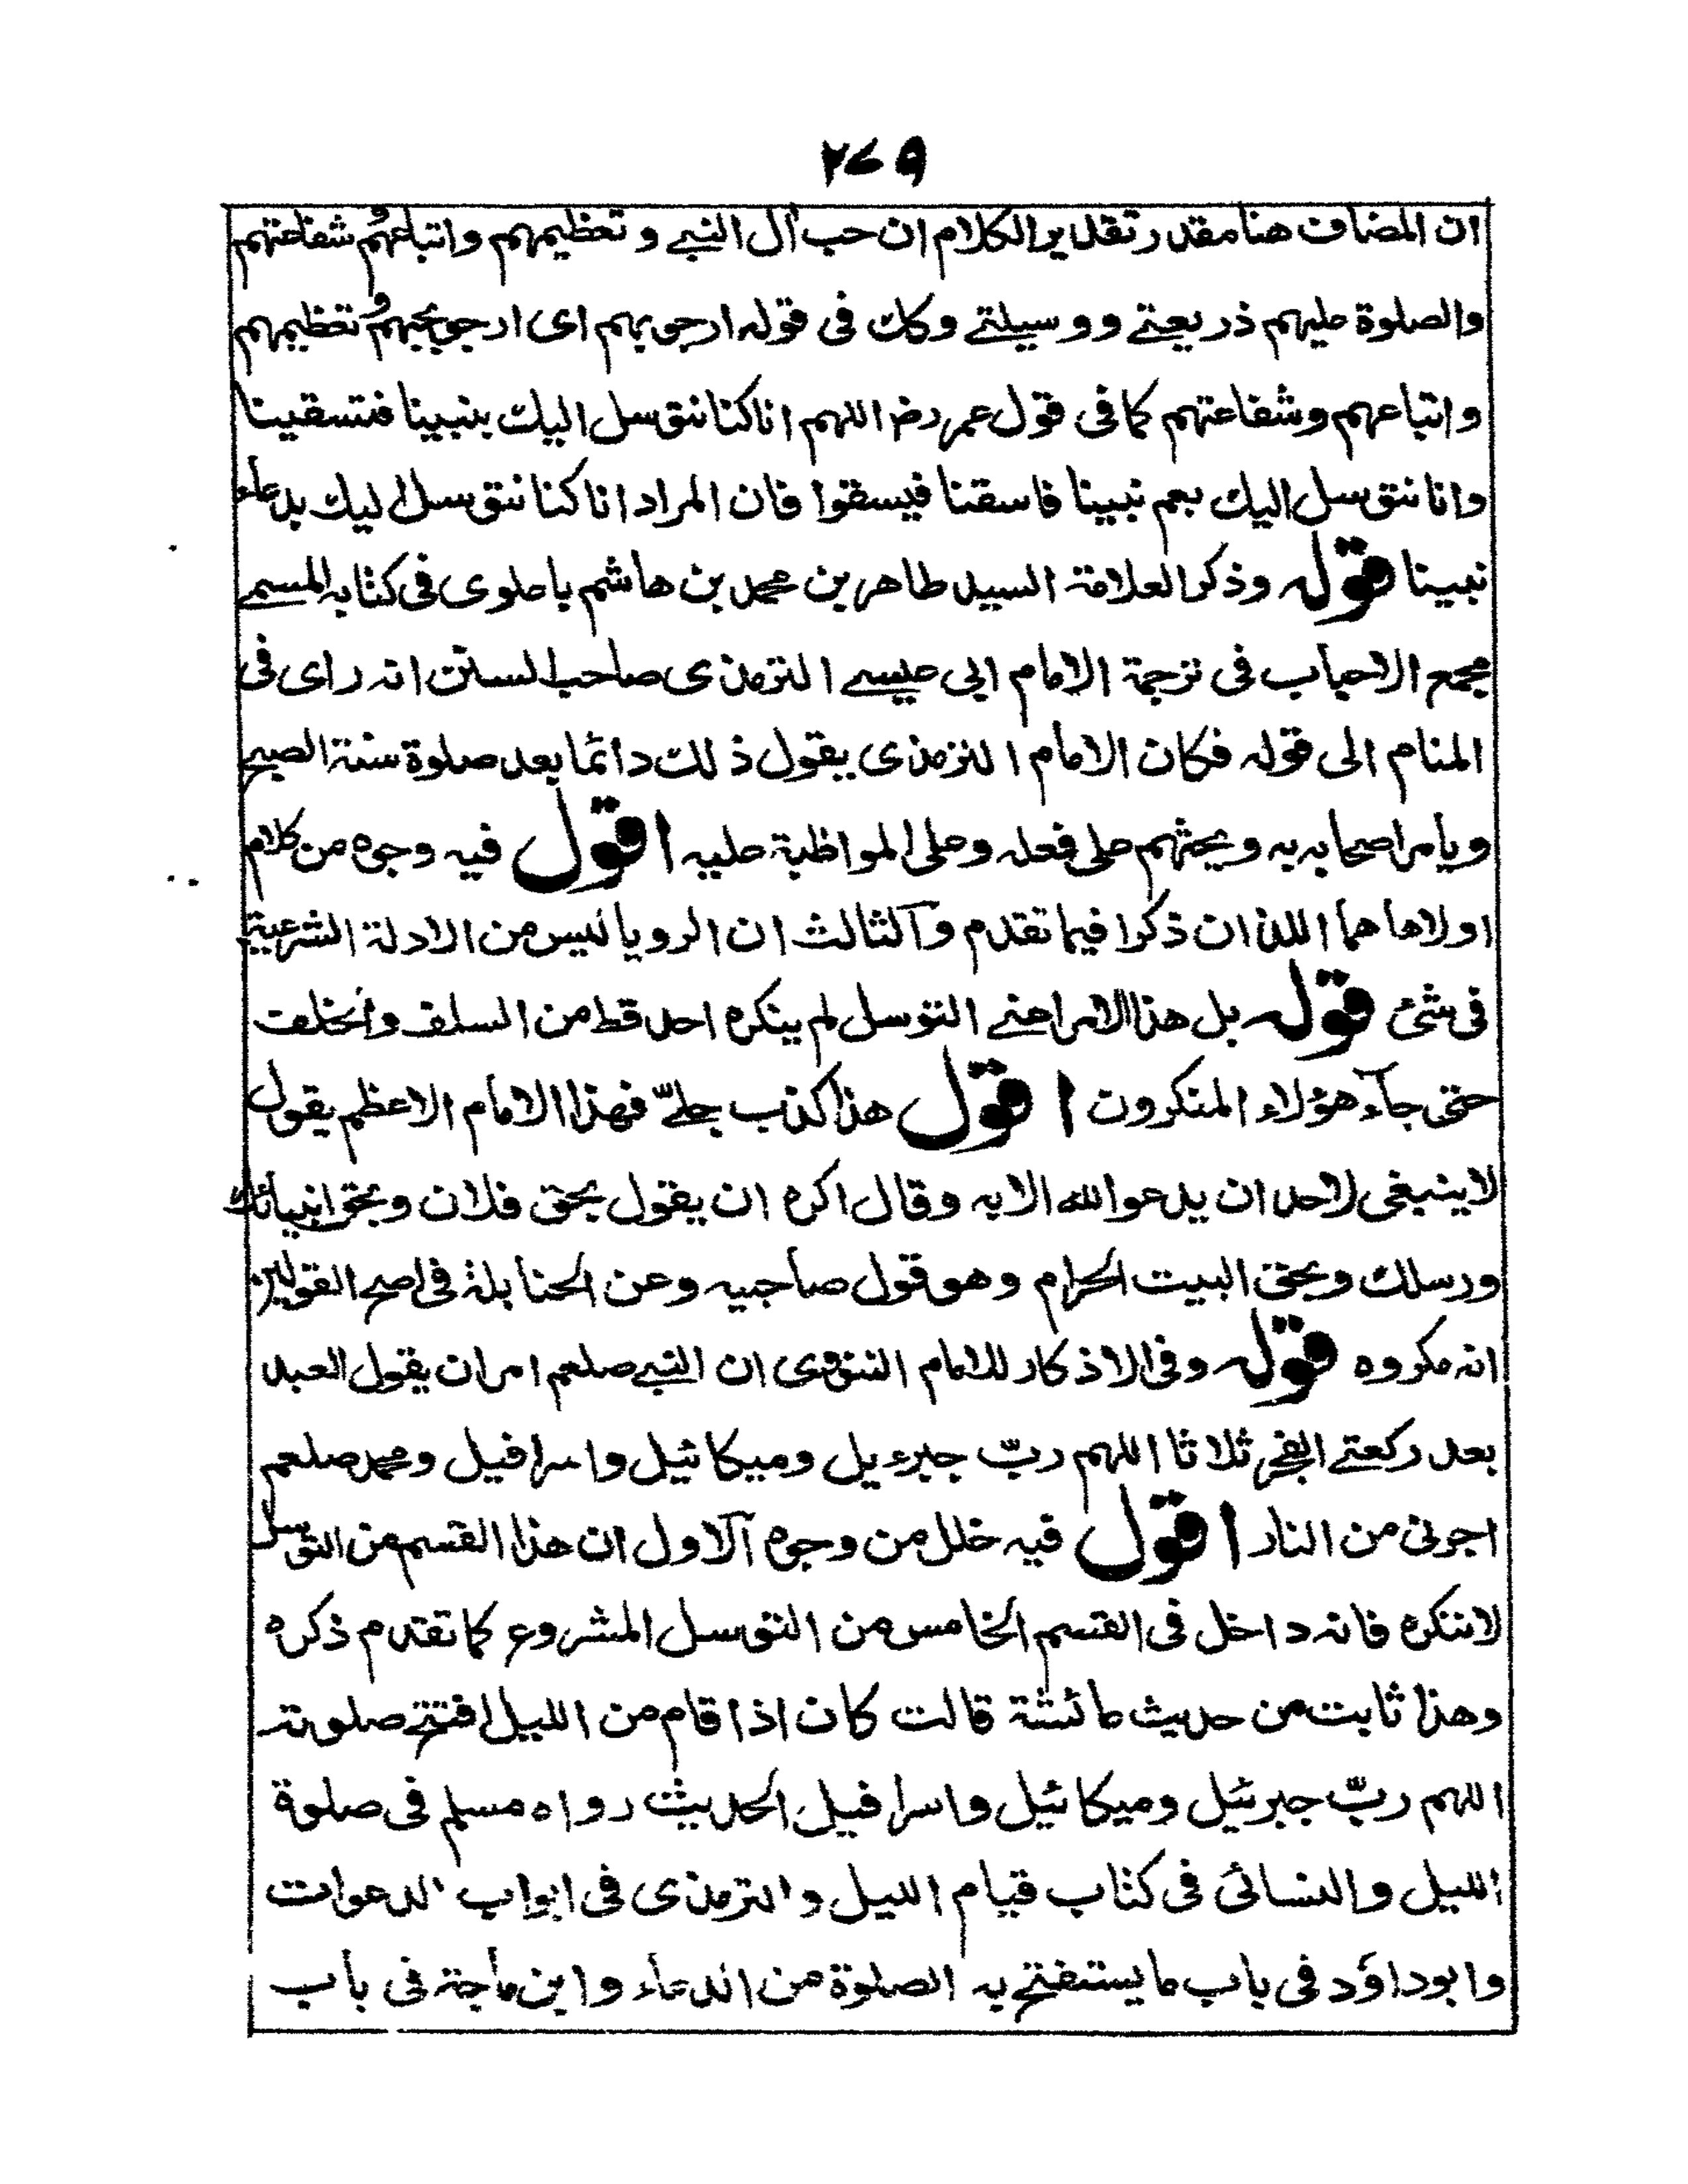 ۲۷۹
ان المضاف هنا مقدر تقدير الكلام ان حب آل النبے و تعظيمهم واتباعهم و شفاعتهم
والصلوة عليهم ذريعتے ووسيلتے وكك فی قوله ارجو بهم ای ارجو بحبهم و تعظيمهم
واتباعهم وشفاعتهم كما فی قول عمر رضـ اللهم انا كنا نتوسل اليك بنبينا فتسقينا
وانا نتوسل اليك بعم نبينا فاسقنا فيسقوا فان المراد انا كنا نتوسل اليك بدعاء
نبينا قوله وذكر العلامة السيد طاهر بن محمد بن هاشم باعلوی فی كتابه المسمے
مجمع الاحباب فی ترجمة الامام ابی عيسے الترمذی صاحب السنن انه رای فی
المنام الی قوله فكان الامام الترمذی يقول ذلك دائما بعد صلوة سنة الصبح
ويأمر اصحابه به ويحثهم علی فعله وعلی المواظبة عليه اقول فيه وجوه من كلام
اولاها هما اللذان ذكرا فيما تقدم وآلثالث ان الرويا ليس من الادلة الشرعية
فی شئ قوله بل هذا الامر اعنے التوسل لم ينكره احد قط من السلف والخلف
حتی جآء هؤلاء المنكرون اقول هذا كذب جلیّ فهذا الامام الاعظم يقول
لا ينبغی لاحد ان يدعو الله الا به وقال اكره ان يقول بحق فلان وبحق انبيائك
ورسلك وبحق البيت الحرام وهو قول صاحبيه وعن الحنابلة فی اصح القولين
انه مكروه قوله وفی الاذكار للامام النووی ان النبے صلعم امر ان يقول العبد
بعد ركعتے الفجر ثلاثا اللهم ربّ جبرءيل وميكائيل واسرافيل ومحمد صلعم
اجرنی من النار اقول فيه خلل من وجوه آلاول ان هذا القسم من التوسل
لا ننكره فانه داخل فی القسم الخامس من التوسل المشروع كما تقدم ذكره
وهذا ثابت من حديث عائشة قالت كان اذا قام من الليل افتتح صلوته
اللهم ربّ جبرئيل وميكائيل واسرافيل الحديث رواه مسلم فی صلوة
الليل والنسائی فی كتاب قيام الليل والترمذی فی ابواب الدعوات
وابوداؤد فی باب ما يستفتح به الصلوة من الدعاء وابن ماجة فی باب